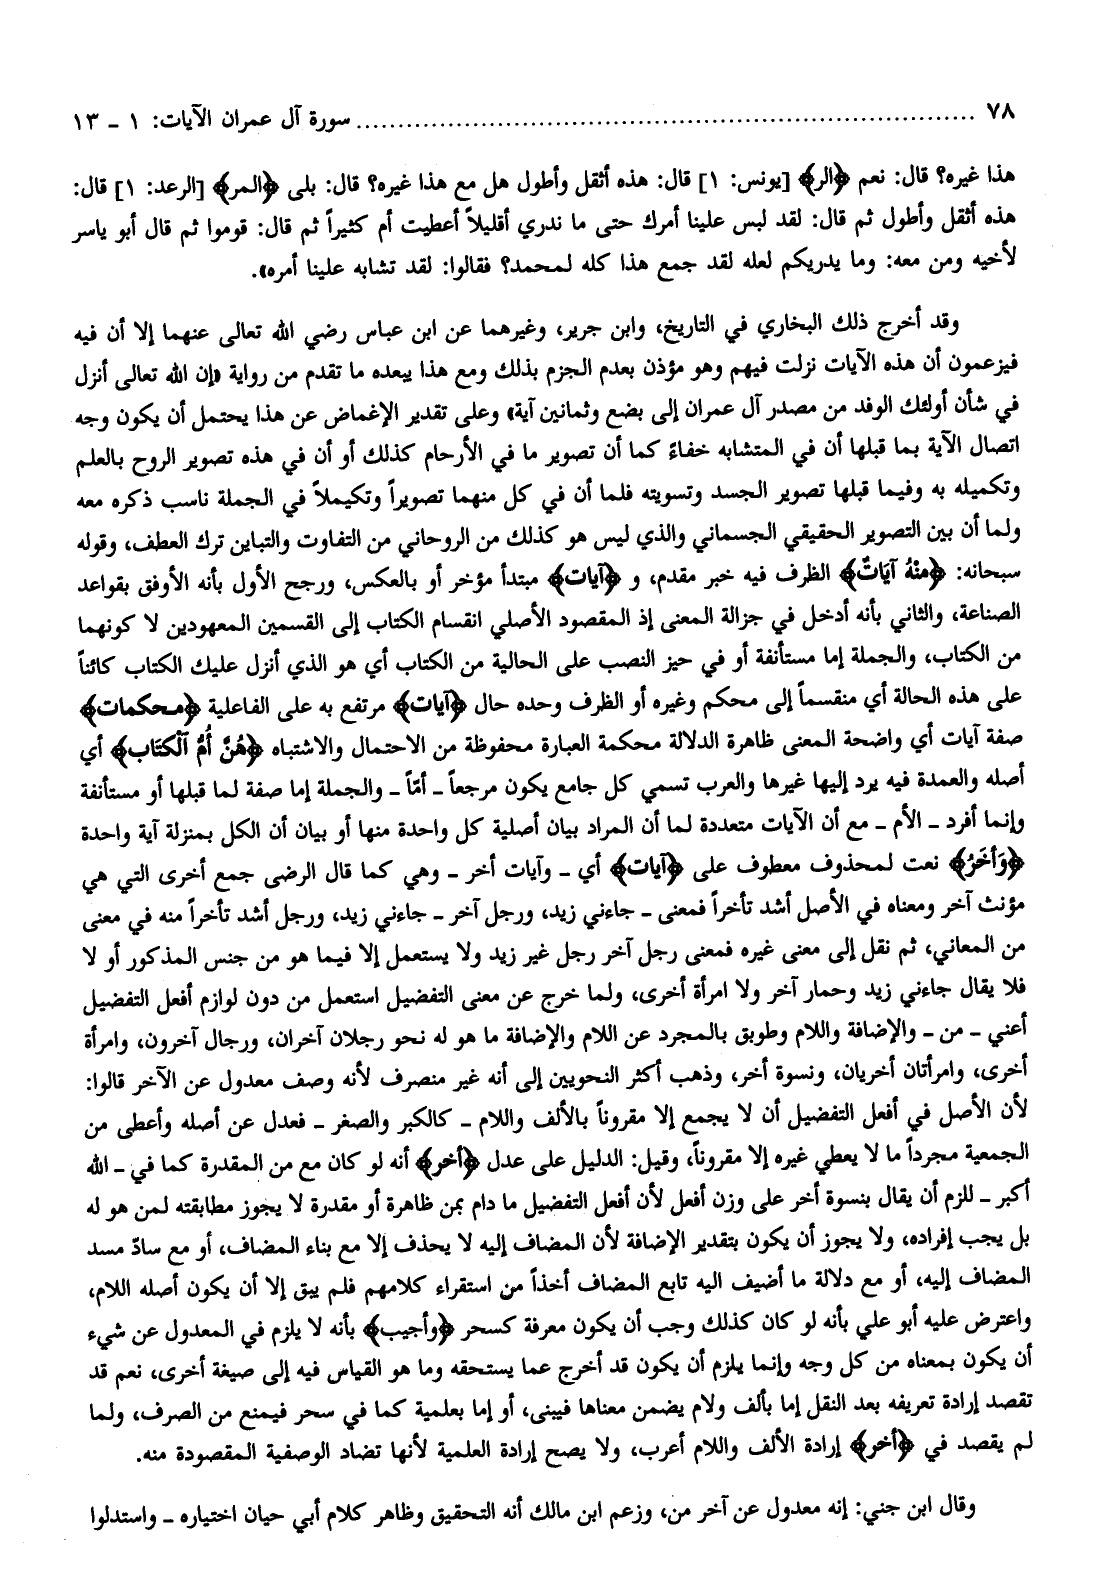 ٧٨ ........................................................................ سورة آل عمران الآيات: ١ - ١٣
هذا غيره؟ قال: نعم ﴿الر﴾ [يونس: ١] قال: هذه أثقل وأطول هل مع هذا غيره؟ قال: بلى ﴿المر﴾ [الرعد: ١] قال:
هذه أثقل وأطول ثم قال: لقد لبس علينا أمرك حتى ما ندري أقليلاً أعطيت أم كثيراً ثم قال: قوموا ثم قال أبو ياسر
لأخيه ومن معه: وما يدريكم لعله لقد جمع هذا كله لمحمد؟ فقالوا: لقد تشابه علينا أمره».
وقد أخرج ذلك البخاري في التاريخ، وابن جرير، وغيرهما عن ابن عباس رضي الله تعالى عنهما إلا أن فيه
فيزعمون أن هذه الآيات نزلت فيهم وهو مؤذن بعدم الجزم بذلك ومع هذا يبعده ما تقدم من رواية «إن الله تعالى أنزل
في شأن أولئك الوفد من مصدر آل عمران إلى بضع وثمانين آية» وعلى تقدير الإغماض عن هذا يحتمل أن يكون وجه
اتصال الآية بما قبلها أن في المتشابه خفاءً كما أن تصوير ما في الأرحام كذلك أو أن في هذه تصوير الروح بالعلم
وتكميله به وفيما قبلها تصوير الجسد وتسويته فلما أن في كل منهما تصويراً وتكيملاً في الجملة ناسب ذكره معه
ولما أن بين التصوير الحقيقي الجسماني والذي ليس هو كذلك من الروحاني من التفاوت والتباين ترك العطف، وقوله
سبحانه: ﴿مِنْهُ آيَاتٌ﴾ الظرف فيه خبر مقدم، و ﴿آيات﴾ مبتدأ مؤخر أو بالعكس، ورجح الأول بأنه الأوفق بقواعد
الصناعة، والثاني بأنه أدخل في جزالة المعنى إذ المقصود الأصلي انقسام الكتاب إلى القسمين المعهودين لا كونهما
من الكتاب، والجملة إما مستأنفة أو في حيز النصب على الحالية من الكتاب أي هو الذي أنزل عليك الكتاب كائناً
على هذه الحالة أي منقسماً إلى محكم وغيره أو الظرف وحده حال ﴿آيات﴾ مرتفع به على الفاعلية ﴿محكمات﴾
صفة آيات أي واضحة المعنى ظاهرة الدلالة محكمة العبارة محفوظة من الاحتمال والاشتباه ﴿هُنَّ أُمُّ ٱلْكتَاب﴾ أي
أصله والعمدة فيه يرد إليها غيرها والعرب تسمي كل جامع يكون مرجعاً - أمّاً - والجملة إما صفة لما قبلها أو مستأنفة
وإنما أفرد - الأم - مع أن الآيات متعددة لما أن المراد بيان أصلية كل واحدة منها أو بيان أن الكل بمنزلة آية واحدة
﴿وَأُخَرُ﴾ نعت لمحذوف معطوف على ﴿آيات﴾ أي - وآيات أخر - وهي كما قال الرضى جمع أخرى التي هي
مؤنث آخر ومعناه في الأصل أشد تأخراً فمعنى - جاءني زيد، ورجل آخر - جاءني زيد، ورجل أشد تأخراً منه في معنى
من المعاني، ثم نقل إلى معنى غيره فمعنى رجل آخر رجل غير زيد ولا يستعمل إلا فيما هو من جنس المذكور أو لا
فلا يقال جاءني زيد وحمار آخر ولا امرأة أخرى، ولما خرج عن معنى التفضيل استعمل من دون لوازم أفعل التفضيل
أعني - من - والإضافة واللام وطوبق بالمجرد عن اللام والإضافة ما هو له نحو رجلان آخران، ورجال آخرون، وامرأة
أخرى، وامرأتان أخريان، ونسوة أخر، وذهب أكثر النحويين إلى أنه غير منصرف لأنه وصف معدول عن الآخر قالوا:
لأن الأصل في أفعل التفضيل أن لا يجمع إلا مقروناً بالألف واللام - كالكبر والصغر - فعدل عن أصله وأعطى من
الجمعية مجرداً ما لا يعطي غيره إلا مقروناً، وقيل: الدليل على عدل ﴿أخر﴾ أنه لو كان مع من المقدرة كما في - الله
أكبر - للزم أن يقال بنسوة أخر على وزن أفعل لأن أفعل التفضيل ما دام بمن ظاهرة أو مقدرة لا يجوز مطابقته لمن هو له
بل يجب إفراده، ولا يجوز أن يكون بتقدير الإضافة لأن المضاف إليه لا يحذف إلا مع بناء المضاف، أو مع سادّ مسد
المضاف إليه، أو مع دلالة ما أضيف اليه تابع المضاف أخذاً من استقراء كلامهم فلم يبق إلا أن يكون أصله اللام،
واعترض عليه أبو علي بأنه لو كان كذلك وجب أن يكون معرفة كسحر ﴿وأجيب﴾ بأنه لا يلزم في المعدول عن شيء
أن يكون بمعناه من كل وجه وإنما يلزم أن يكون قد أخرج عما يستحقه وما هو القياس فيه إلى صيغة أخرى، نعم قد
تقصد إرادة تعريفه بعد النقل إما بألف ولام يضمن معناها فيبنى، أو إما بعلمية كما في سحر فيمنع من الصرف، ولما
لم يقصد في ﴿أخر﴾ إرادة الألف واللام أعرب، ولا يصح إرادة العلمية لأنها تضاد الوصفية المقصودة منه.
وقال ابن جني: إنه معدول عن آخر من، وزعم ابن مالك أنه التحقيق وظاهر كلام أبي حيان اختياره - واستدلوا